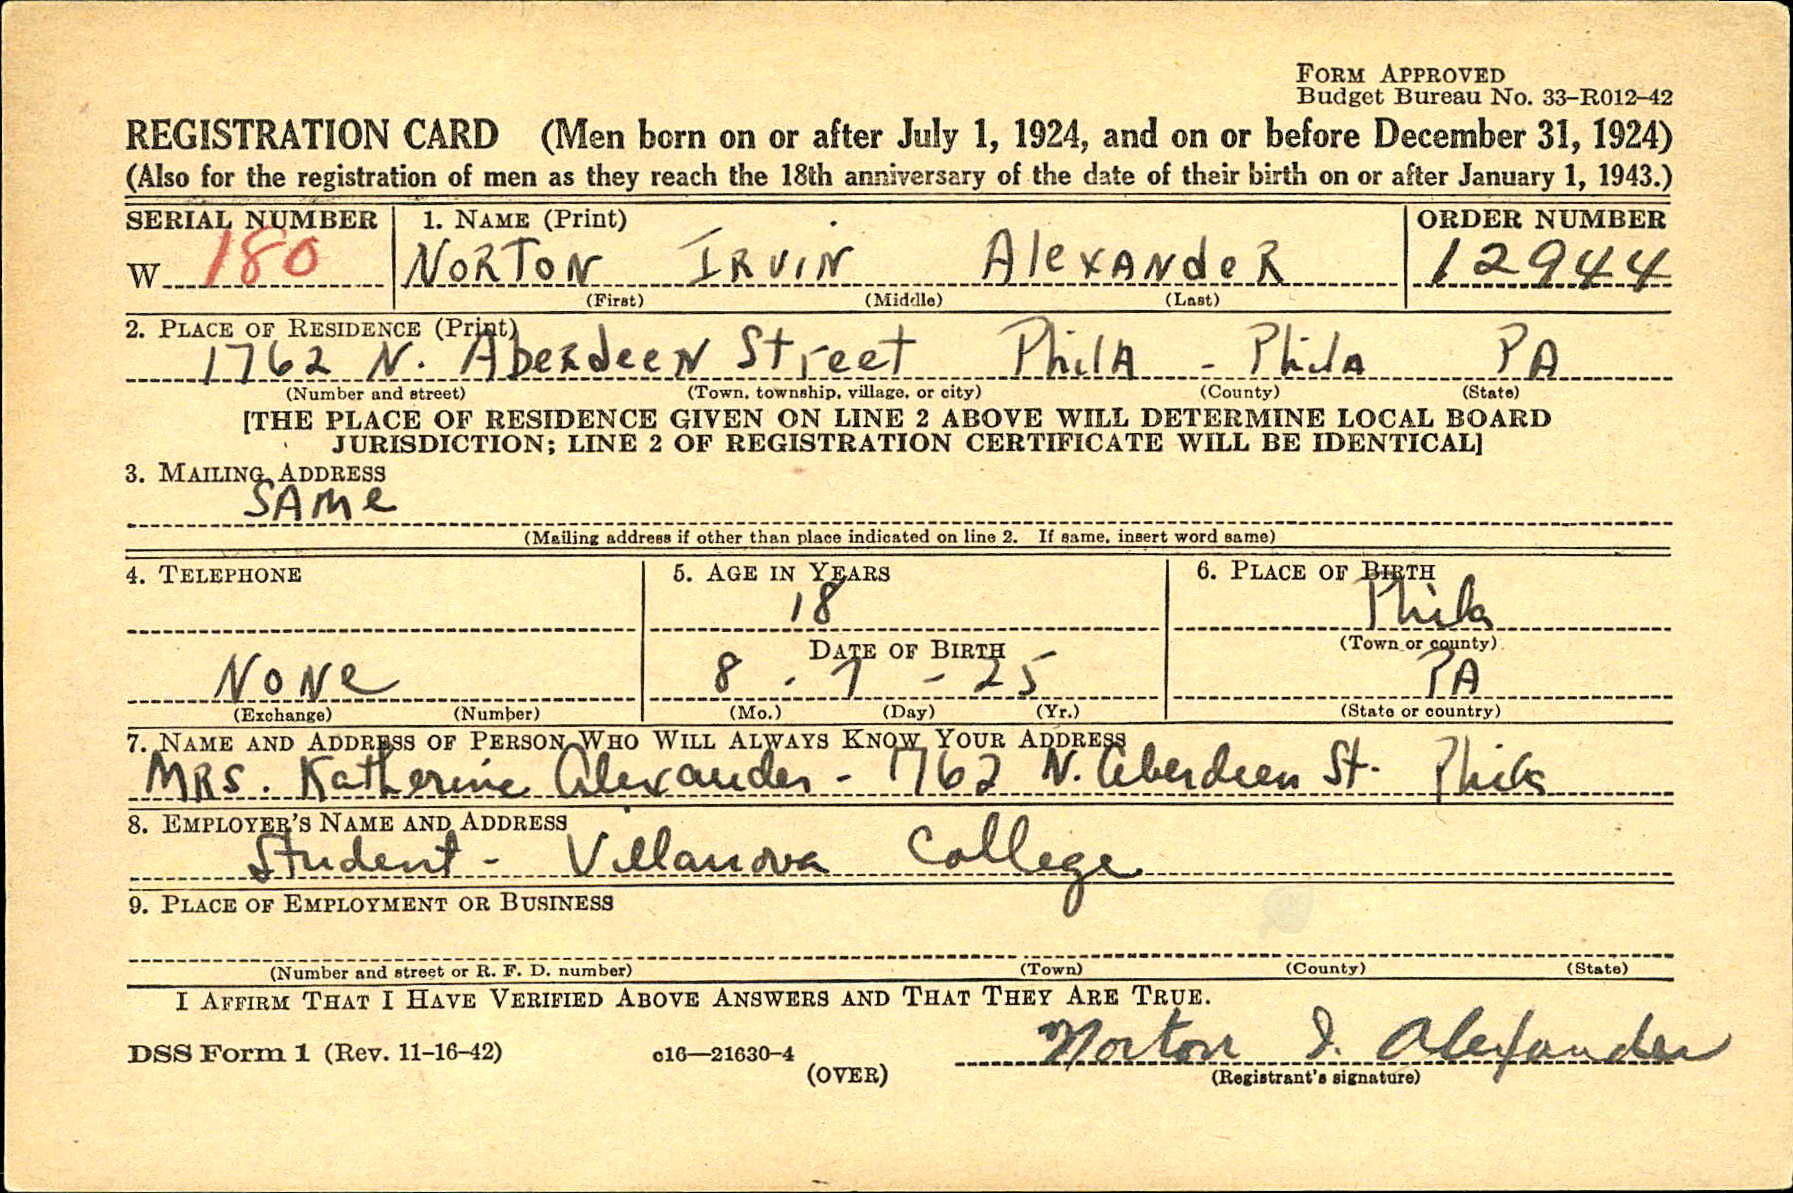 FORM APPROVED
Budget Bureau No. 33-R012-42
REGISTRATION CARD (Men born on or after July 1, 1924, and on or before December 31, 1924)
(Also for the registration of men as they reach the 18th anniversary of the date of their birth on or after January 1, 1943.)
SERIAL NUMBER 1. NAME (Print) ORDER NUMBER
W 180 NORTON IRVIN AlexANdeR 12944
(First) (Middle) (Last)
2. PLACE OF RESIDENCE (Print)
1762 N. AbeRdeeN Street PhilA - Phila PA
(Number and street) (Town, township, village, or city) (County) (State)
[THE PLACE OF RESIDENCE GIVEN ON LINE 2 ABOVE WILL DETERMINE LOCAL BOARD
JURISDICTION; LINE 2 OF REGISTRATION CERTIFICATE WILL BE IDENTICAL]
3. MAILING ADDRESS
SAMe
(Mailing address if other than place indicated on line 2. If same, insert word same)
4. TELEPHONE 5. AGE IN YEARS 6. PLACE OF BIRTH
18 Phila
DATE OF BIRTH (Town or county)
NoNe 8 - 7 - 25 PA
(Exchange) (Number) (Mo.) (Day) (Yr.) (State or country)
7. NAME AND ADDRESS OF PERSON WHO WILL ALWAYS KNOW YOUR ADDRESS
MRS. Katherine Alexander - 1762 N. Aberdeen St. Phila
8. EMPLOYER'S NAME AND ADDRESS
Student - Villanova College
9. PLACE OF EMPLOYMENT OR BUSINESS
(Number and street or R. F. D. number) (Town) (County) (State)
I AFFIRM THAT I HAVE VERIFIED ABOVE ANSWERS AND THAT THEY ARE TRUE.
DSS Form 1 (Rev. 11-16-42) c16—21630-4 Norton I. Alexander
(OVER) (Registrant's signature)